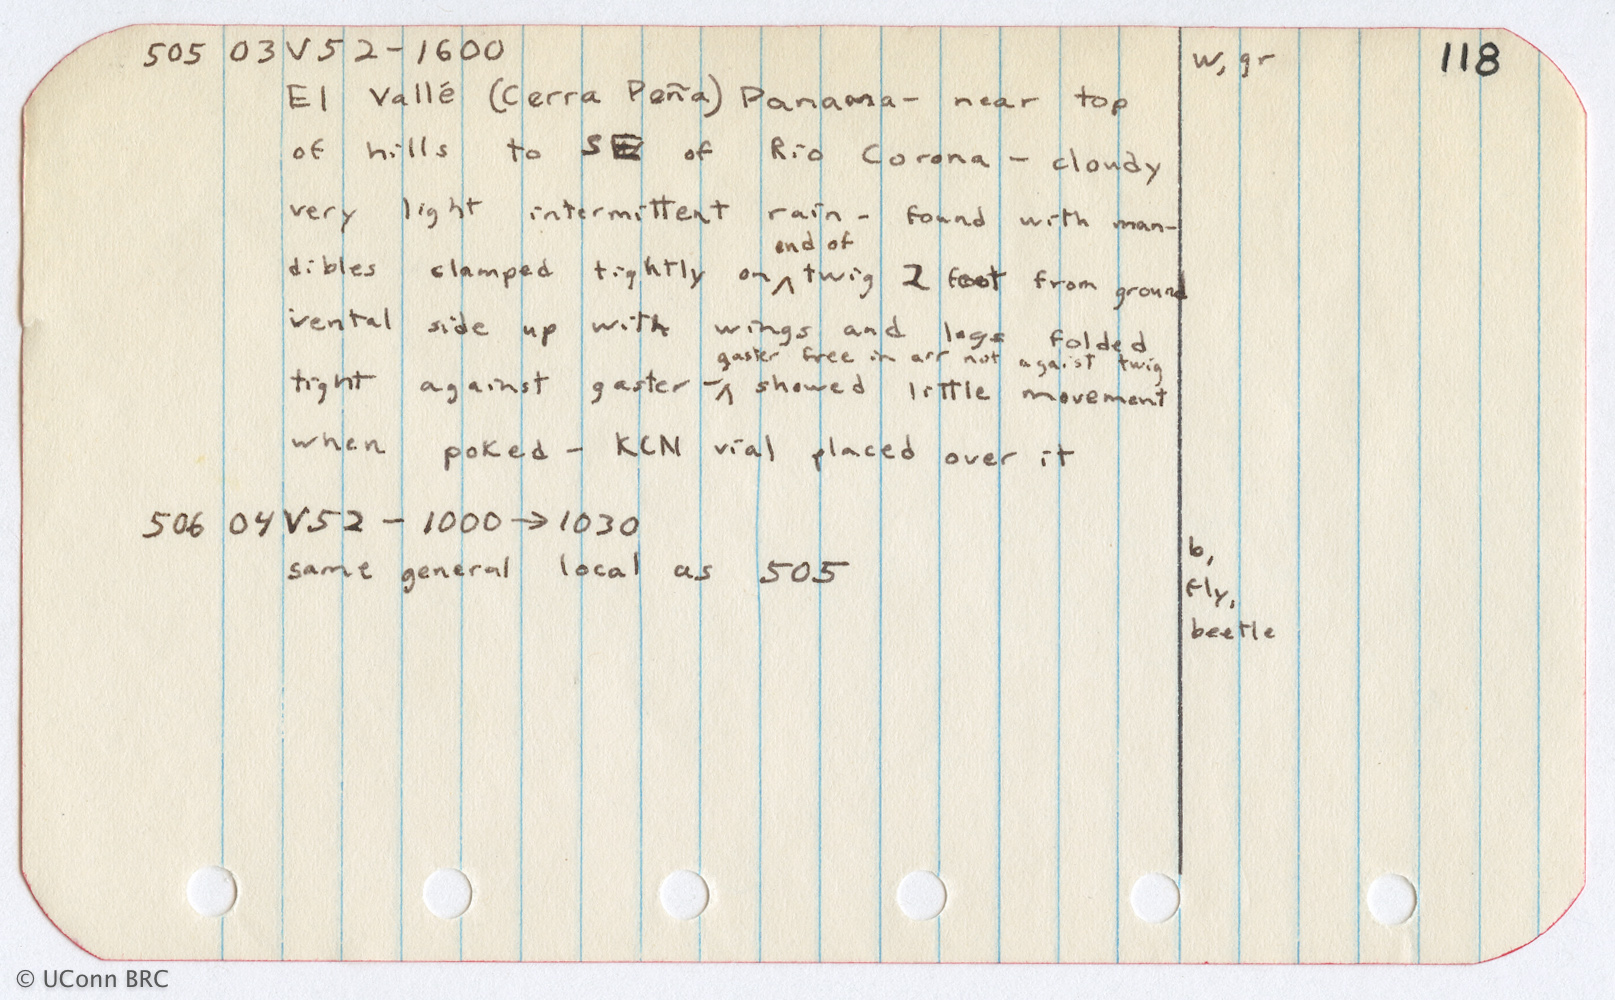 505 03V52-1600 w, gr 118
El Vallé (Cerra Peña) Panama - near top
of hills to S of Rio Corona - cloudy
very light intermittent rain - found with man-
end of
dibles clamped tightly on ^ twig 2 foot from ground
vental side up with wings and legs folded
gaster free in air not agaist twig
tight against gaster - ^ showed little movement
when poked - KCN vial placed over it
506 04V52 - 1000 → 1030
b,
same general local as 505
fly,
beetle
© UConn BRC